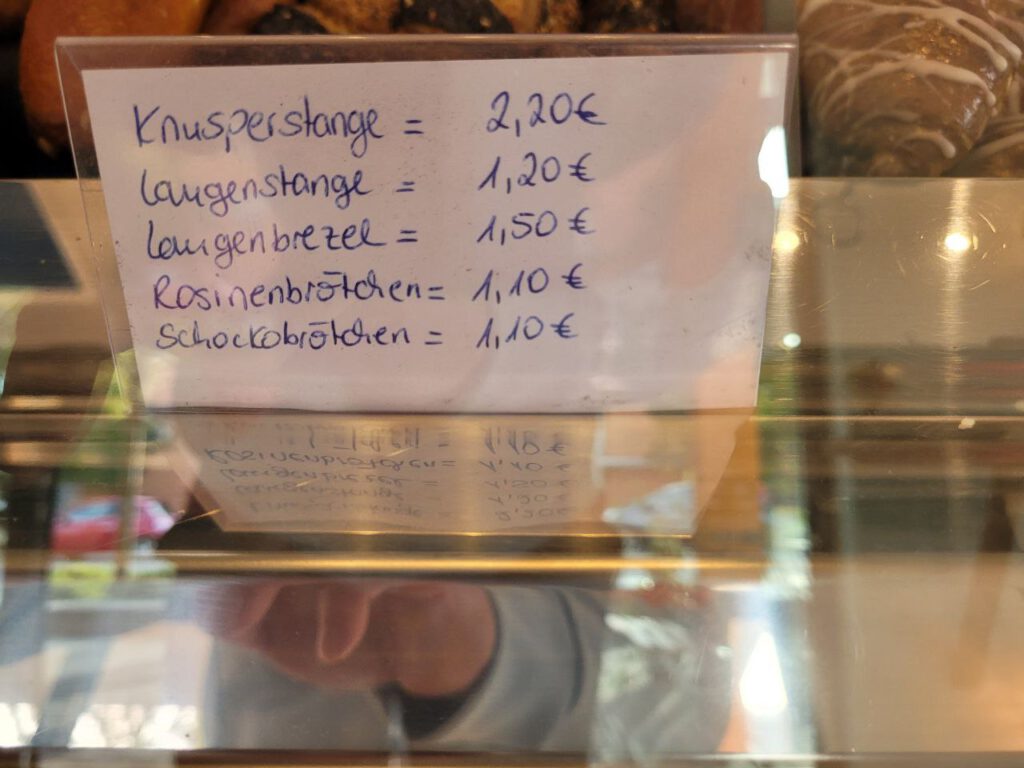 Knusperstange = 2,20€
Laugenstange = 1,20€
Laugenbrezel = 1,50€
Rosinenbrötchen = 1,10€
Schockobrötchen = 1,10€